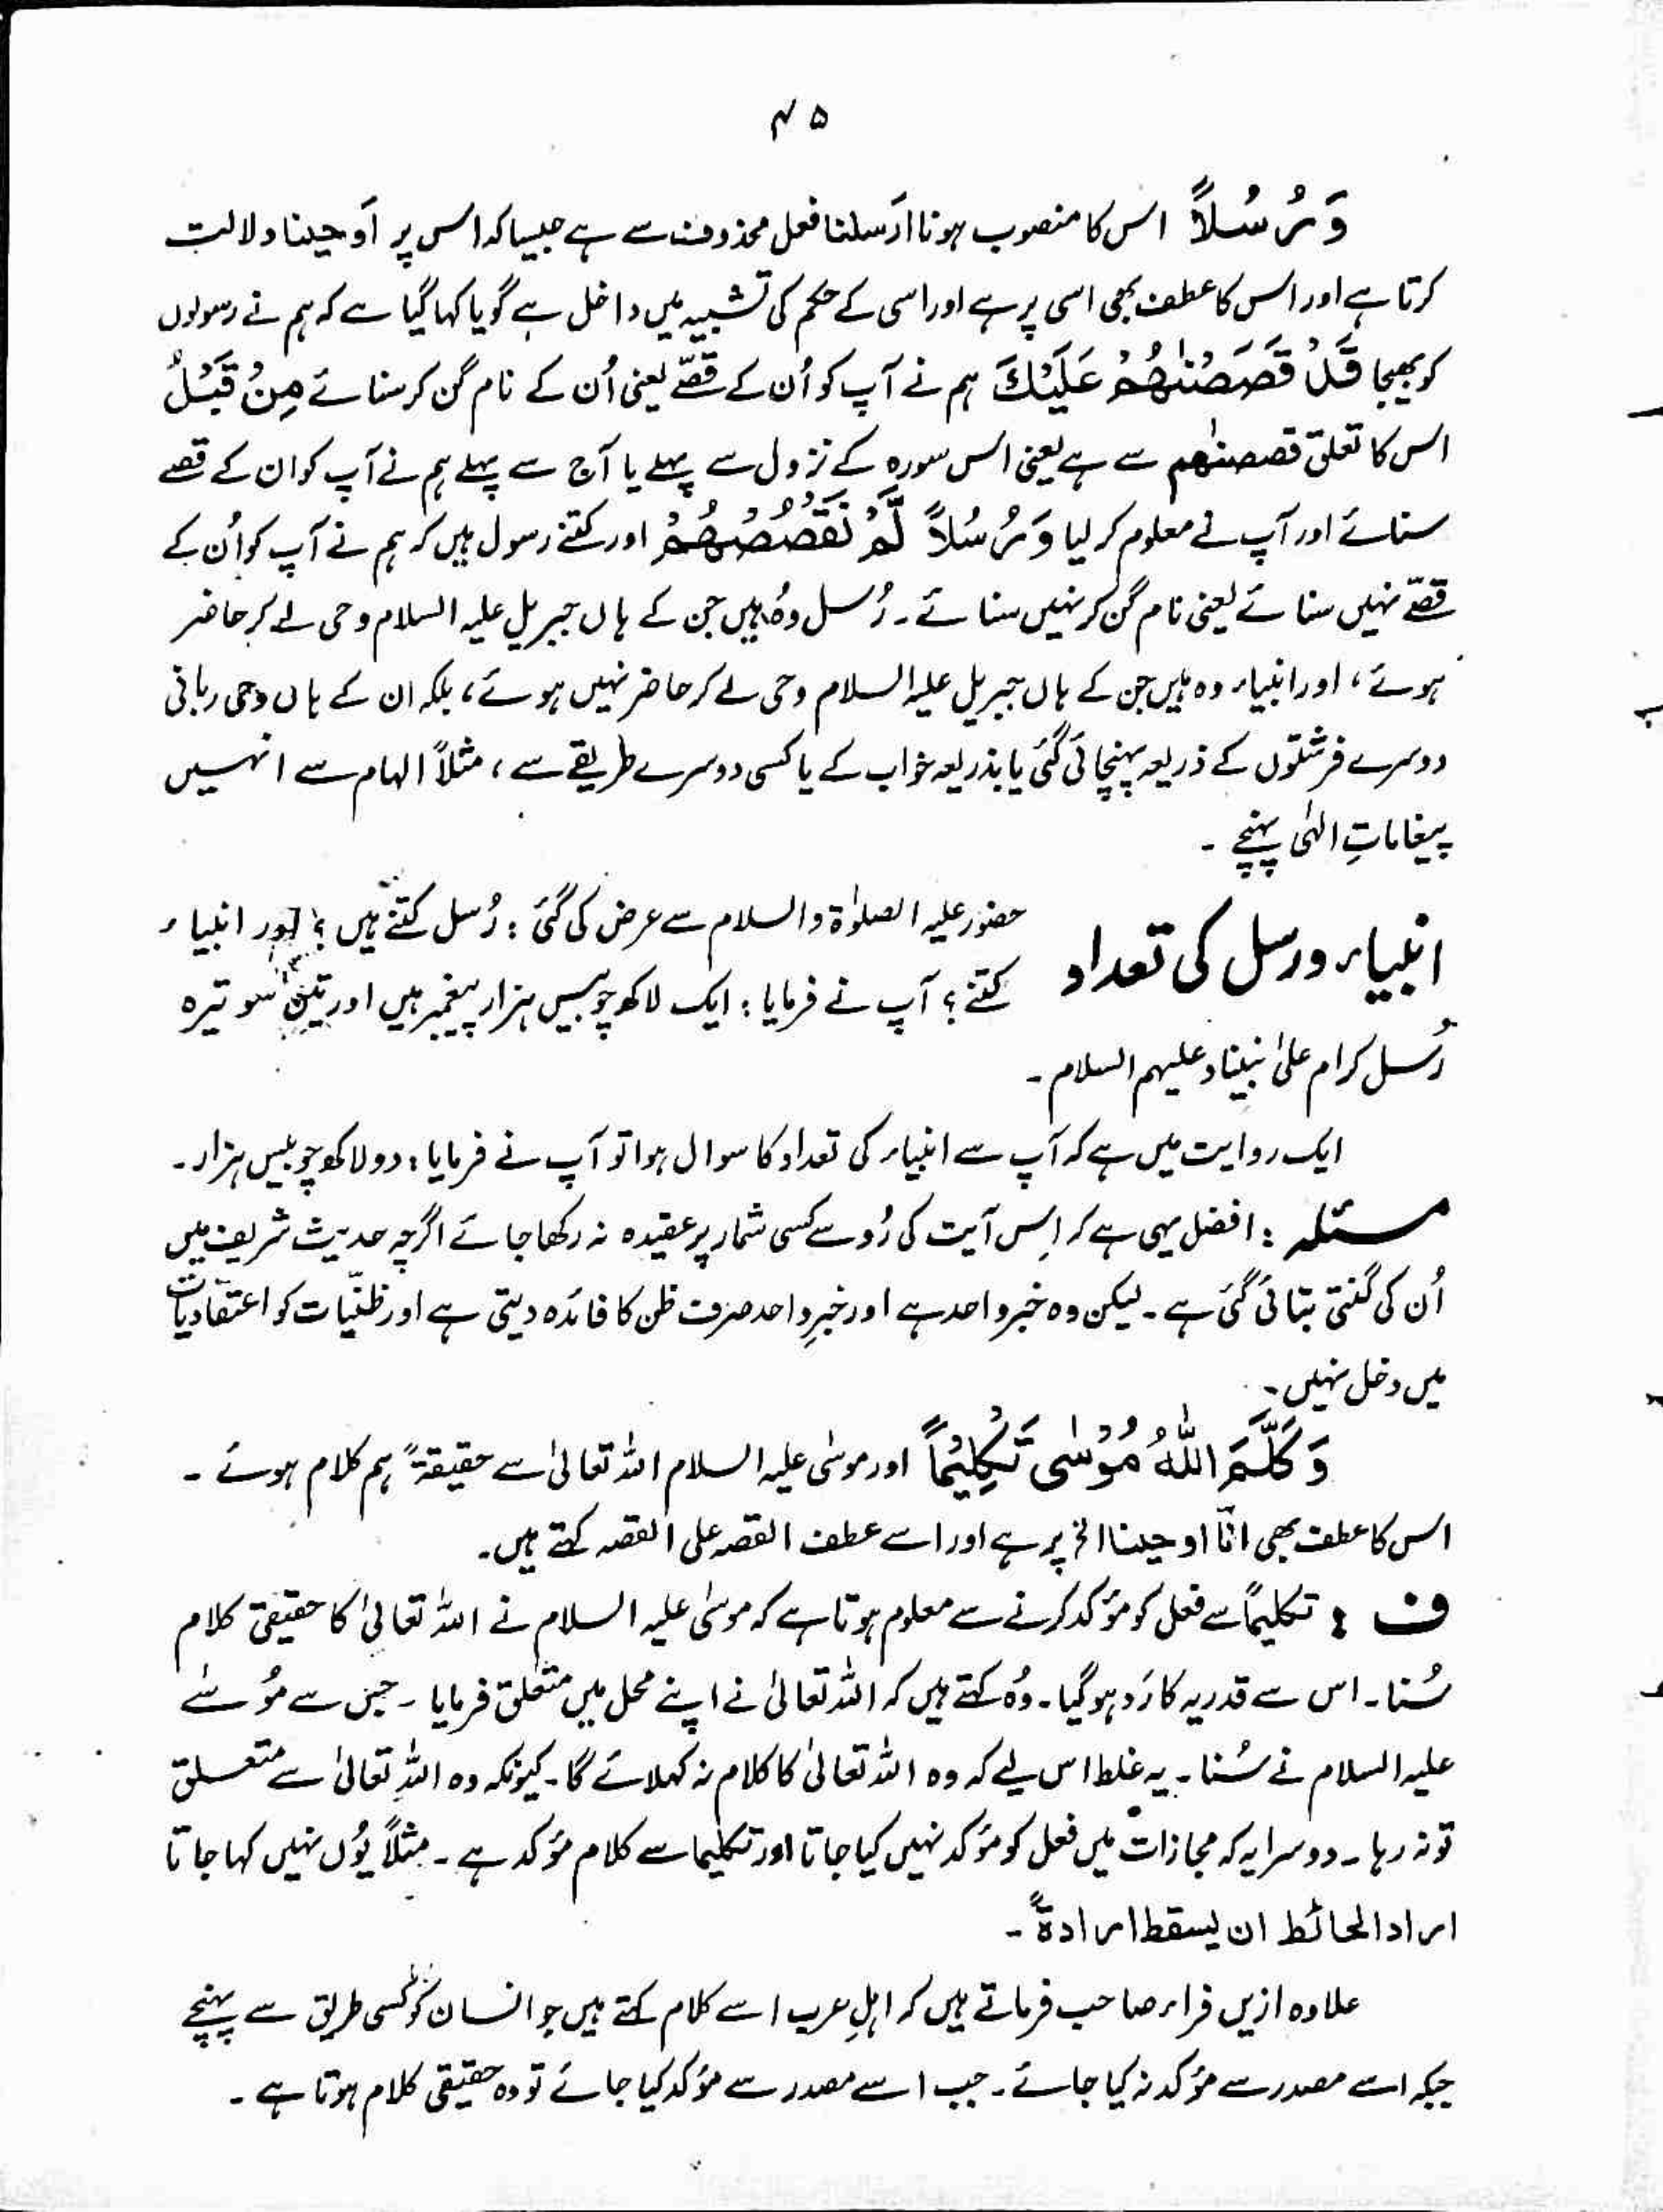 ۴۵
وَرُسُلًا اس کا منصوب ہونا ارَسلنا فعل محذوف سے ہے جیسا کہ اس پر اَوحینا دلالت
کرتا ہے اور اس کا عطف بھی اسی پر ہے اور اسی کے حکم کی تشبیہ میں داخل ہے گویا کہا گیا ہے کہ ہم نے رسولوں
کو بھیجا قَدْ قَصَصْنٰهُمْ عَلَيْكَ ہم نے آپ کو اُن کے قصّے یعنی اُن کے نام گن کر سنائے مِنْ قَبْلُ
اس کا تعلق قصصنٰھم سے ہے یعنی اس سورہ کے نزول سے پہلے یا آج سے پہلے ہم نے آپ کو ان کے قصے
سنائے اور آپ نے معلوم کر لیا وَرُسُلًا لَّمْ نَقْصُصْهُمْ اور کتنے رسول ہیں کہ ہم نے آپ کو اُن کے
قصّے نہیں سنائے یعنی نام گن کر نہیں سنائے۔ رُسل وہُ ہیں جن کے ہاں جبریل علیہ السلام وحی لے کر حاضر
ہوئے، اور انبیاء وہ ہیں جن کے ہاں جبریل علیہ السلام وحی لے کر حاضر نہیں ہوئے، بلکہ ان کے ہاں وحی ربانی
دوسرے فرشتوں کے ذریعہ پہنچائی گئی یا بذریعہ خواب کے یا کسی دوسرے طریقے سے، مثلاً الہام سے انہیں
پیغاماتِ الٰہی پہنچے۔
انبیاء ورسل کی تعداد
حضور علیہ الصلوٰۃ والسلام سے عرض کی گئی: رُسل کتنے ہیں؟ اور انبیاء
کتنے؟ آپ نے فرمایا: ایک لاکھ چوبیس ہزار پیغمبر ہیں اور تین سو تیرہ
رُسل کرام علیٰ نبینا وعلیہم السلام۔
ایک روایت میں ہے کہ آپ سے انبیاء کی تعداد کا سوال ہوا تو آپ نے فرمایا: دو لاکھ چوبیس ہزار۔
مسئلہ: افضل یہی ہے کہ اِس آیت کی رُو سے کسی شمار پر عقیدہ نہ رکھا جائے اگرچہ حدیث شریف میں
اُن کی گنتی بتائی گئی ہے۔ لیکن وہ خبر واحد ہے اور خبرِ واحد صرف ظن کا فائدہ دیتی ہے اور ظنّیات کو اعتقادیات
میں دخل نہیں۔
وَكَلَّمَ اللّٰهُ مُوْسٰى تَكْلِيْمًا اور موسٰی علیہ السلام اللہ تعالیٰ سے حقیقۃً ہم کلام ہوئے۔
اس کا عطف بھی انّا اوحینا الخ پر ہے اور اسے عطف القصہ علی القصہ کہتے ہیں۔
ف: تکلیماً سے فعل کو مؤکد کرنے سے معلوم ہوتا ہے کہ موسٰی علیہ السلام نے اللہ تعالیٰ کا حقیقی کلام
سُنا۔ اس سے قدریہ کا رَد ہو گیا۔ وہُ کہتے ہیں کہ اللہ تعالیٰ نے اپنے محل میں متعلق فرمایا۔ جس سے مُوسٰے
علیہ السلام نے سُنا۔ یہ غلط اس لیے کہ وہ اللہ تعالیٰ کا کلام نہ کہلائے گا۔ کیونکہ وہ اللہ تعالیٰ سے متعلق
تو نہ رہا۔ دوسرا یہ کہ مجازات میں فعل کو مؤکد نہیں کیا جاتا اور تکلیما سے کلام مؤکد ہے۔ مثلاً یُوں نہیں کہا جاتا
اراد الحائط ان یسقط ارادۃً۔
علاوہ ازیں فراء صاحب فرماتے ہیں کہ اہلِ عرب اسے کلام کہتے ہیں جو انسان کو کسی طریق سے پہنچے
جبکہ اسے مصدر سے مؤکد نہ کیا جائے۔ جب اسے مصدر سے مؤکد کیا جائے تو وہ حقیقی کلام ہوتا ہے۔